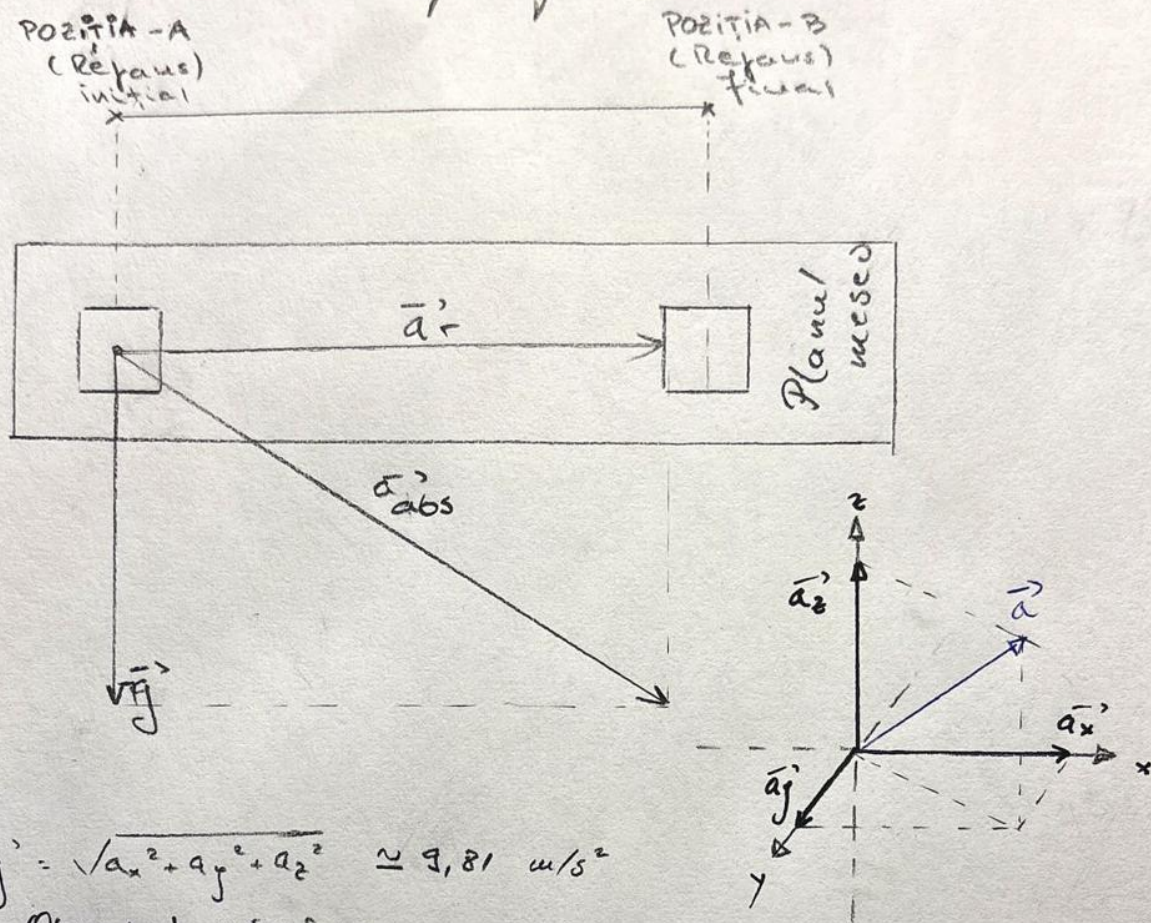 POZIȚIA - A
(Repaus)
inițial
POZIȚIA - B
(Repaus)
final
a⃗r
Planul
mesei
a⃗abs
g⃗
z
a⃗z
a⃗
a⃗x
x
a⃗y
y
= √ax² + ay² + az² ≃ 9,81 m/s²